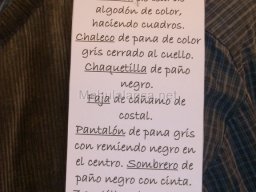 algodón de color,
haciendo cuadros.
Chaleco de pana de color
gris cerrado al cuello.
Chaquetilla de paño
negro.
Faja de cáñamo de
costal.
Pantalón de pana gris
con remiendo negro en
el centro. Sombrero de
paño negro con cinta.